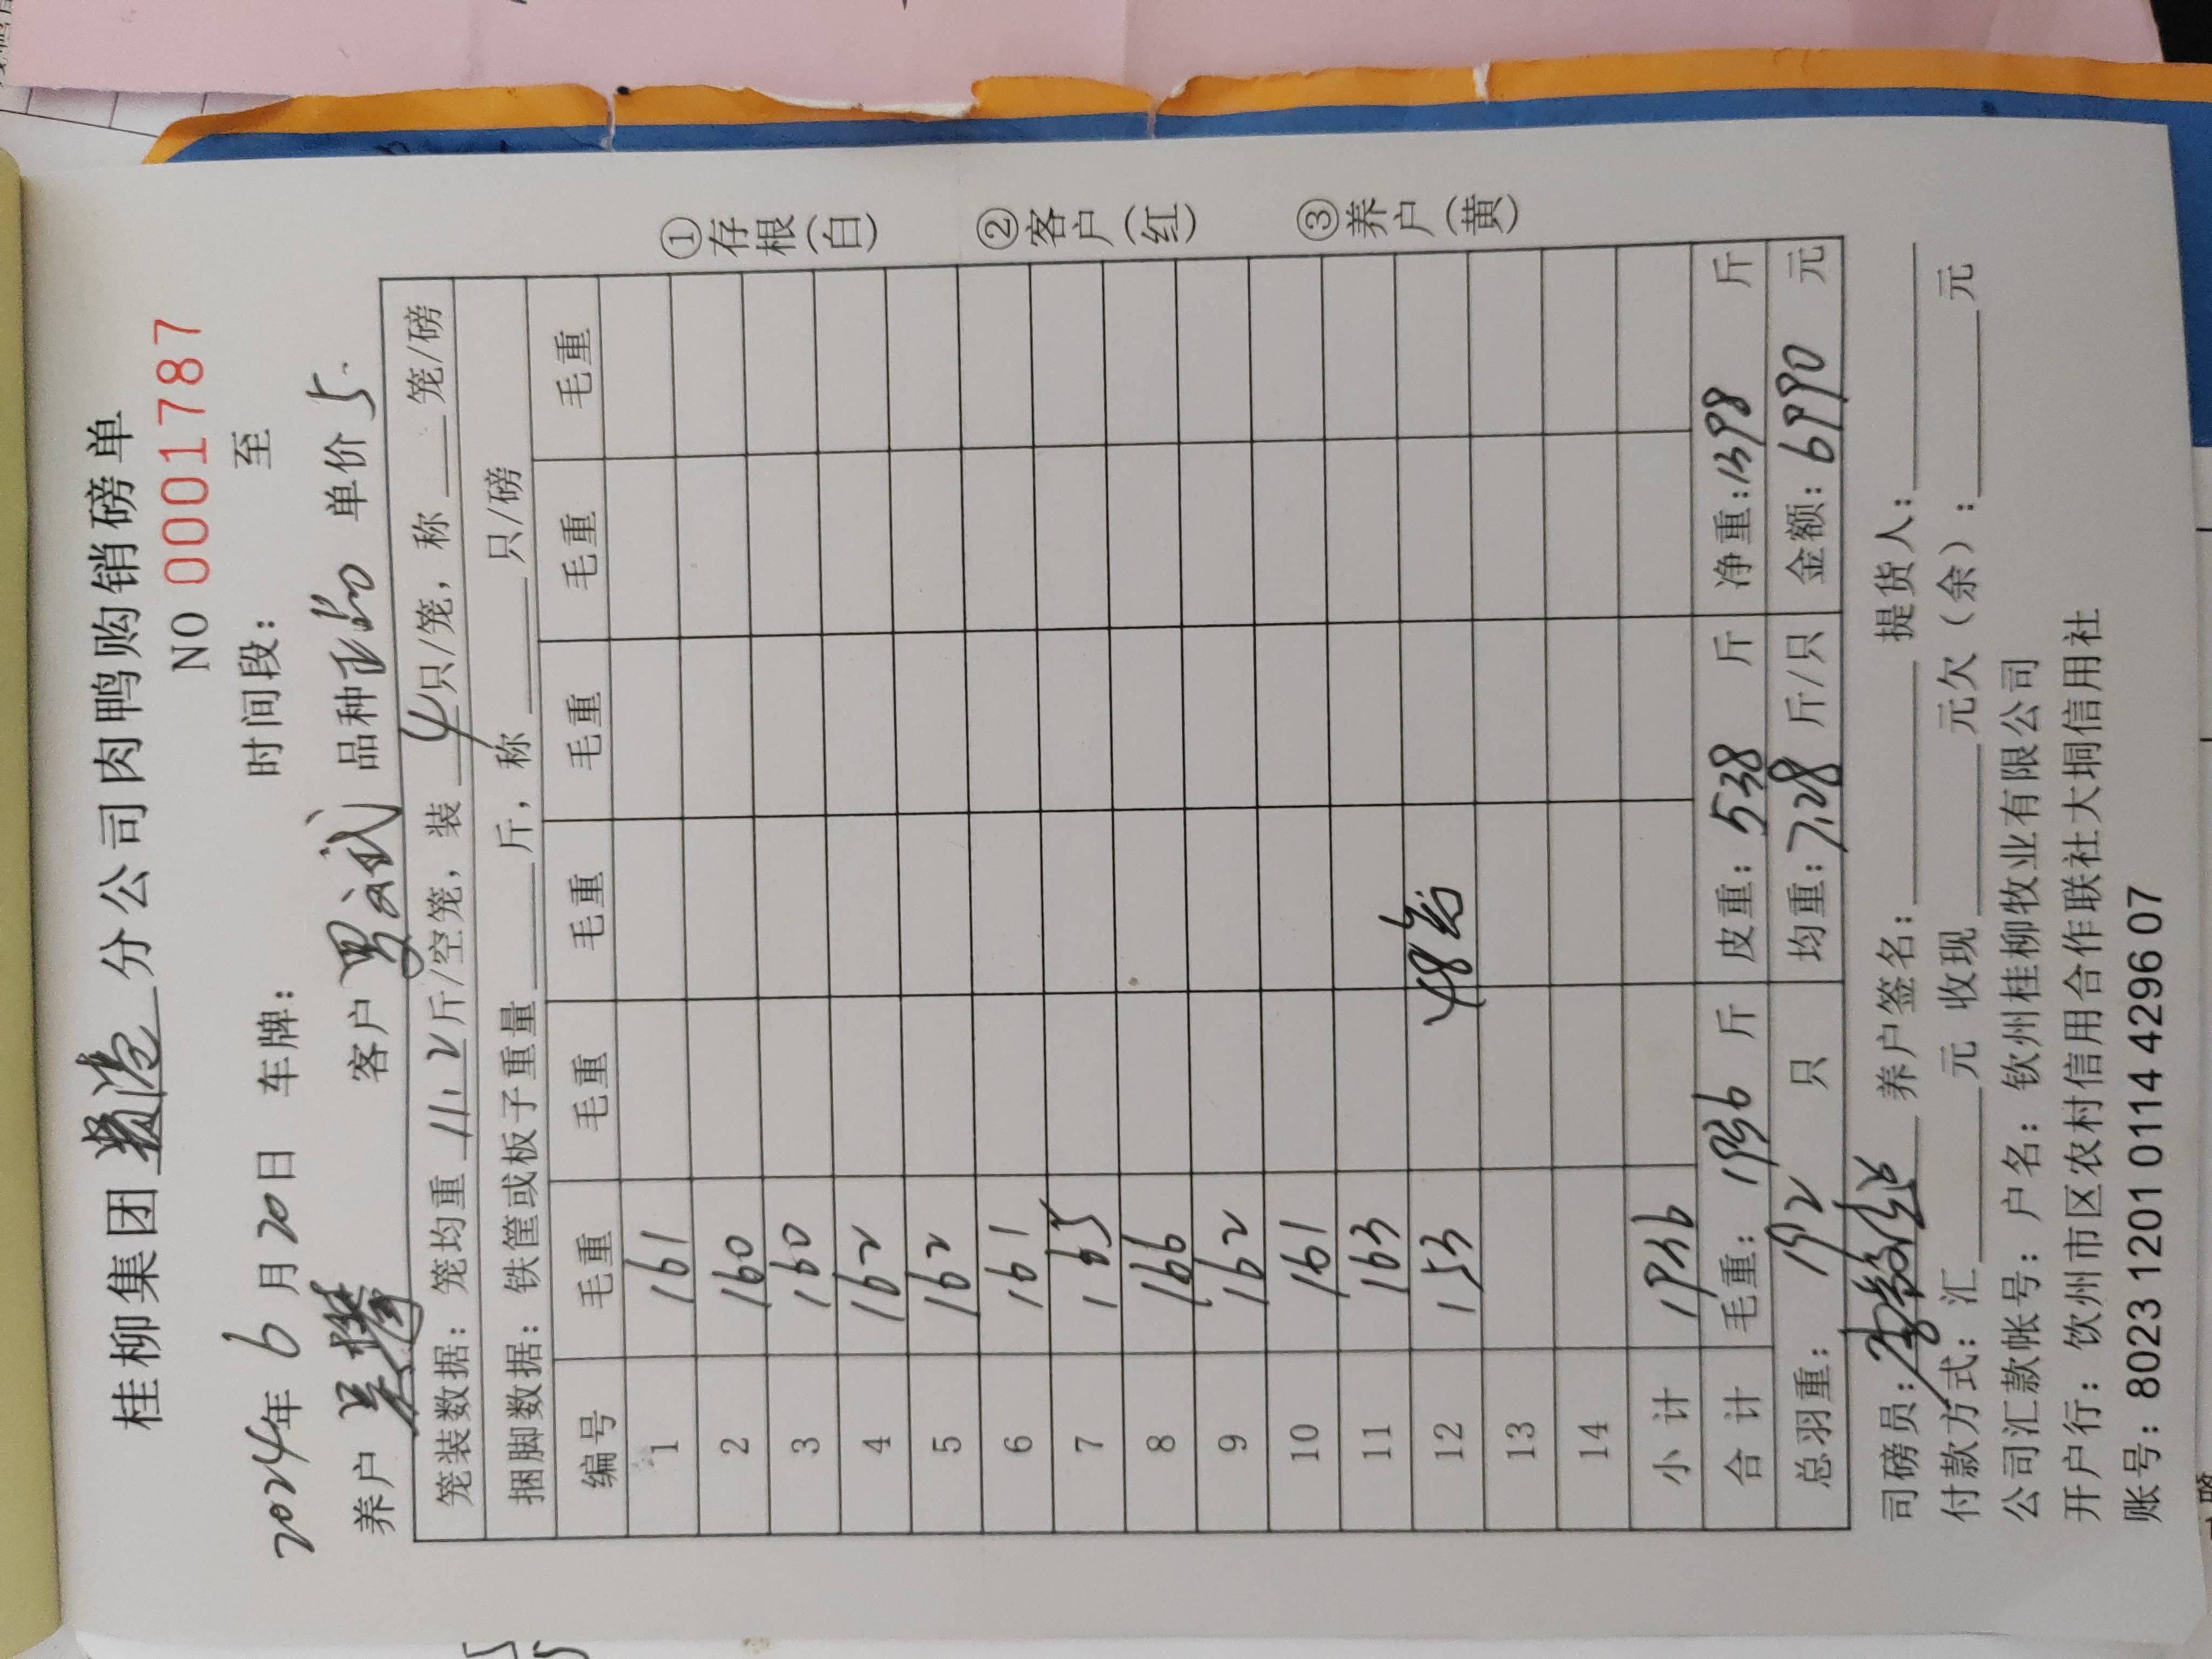 桂柳集团贵港分公司肉鸭购销磅单
NO 0001787
2024年6月20日 车牌: 时间段: 至
养户 客户 品种 单价5.
笼装数据: 笼均重11.2斤/空笼, 装4只/笼, 称 笼/磅
捆脚数据: 铁筐或板子重量 斤, 称 只/磅
编号 毛重 毛重 毛重 毛重 毛重 毛重
1 161
2 160
3 160
4 162
5 162
6 161
7 165
8 166
9 162
10 161
11 163
12 153 48笼
13
14
小计 1936
合计 毛重: 1936 斤 皮重: 538 斤 净重: 1398 斤
总羽重: 192 只 均重: 7.28 斤/只 金额: 6990 元
司磅员: 养户签名: 提货人:
付款方式: 汇 元 收现 元欠(余): 元
公司汇款帐号: 户名: 钦州桂柳牧业有限公司
开户行: 钦州市区农村信用合作联社大垌信用社
账号: 8023 1201 0114 4296 07
①存根(白)
②客户(红)
③养户(黄)